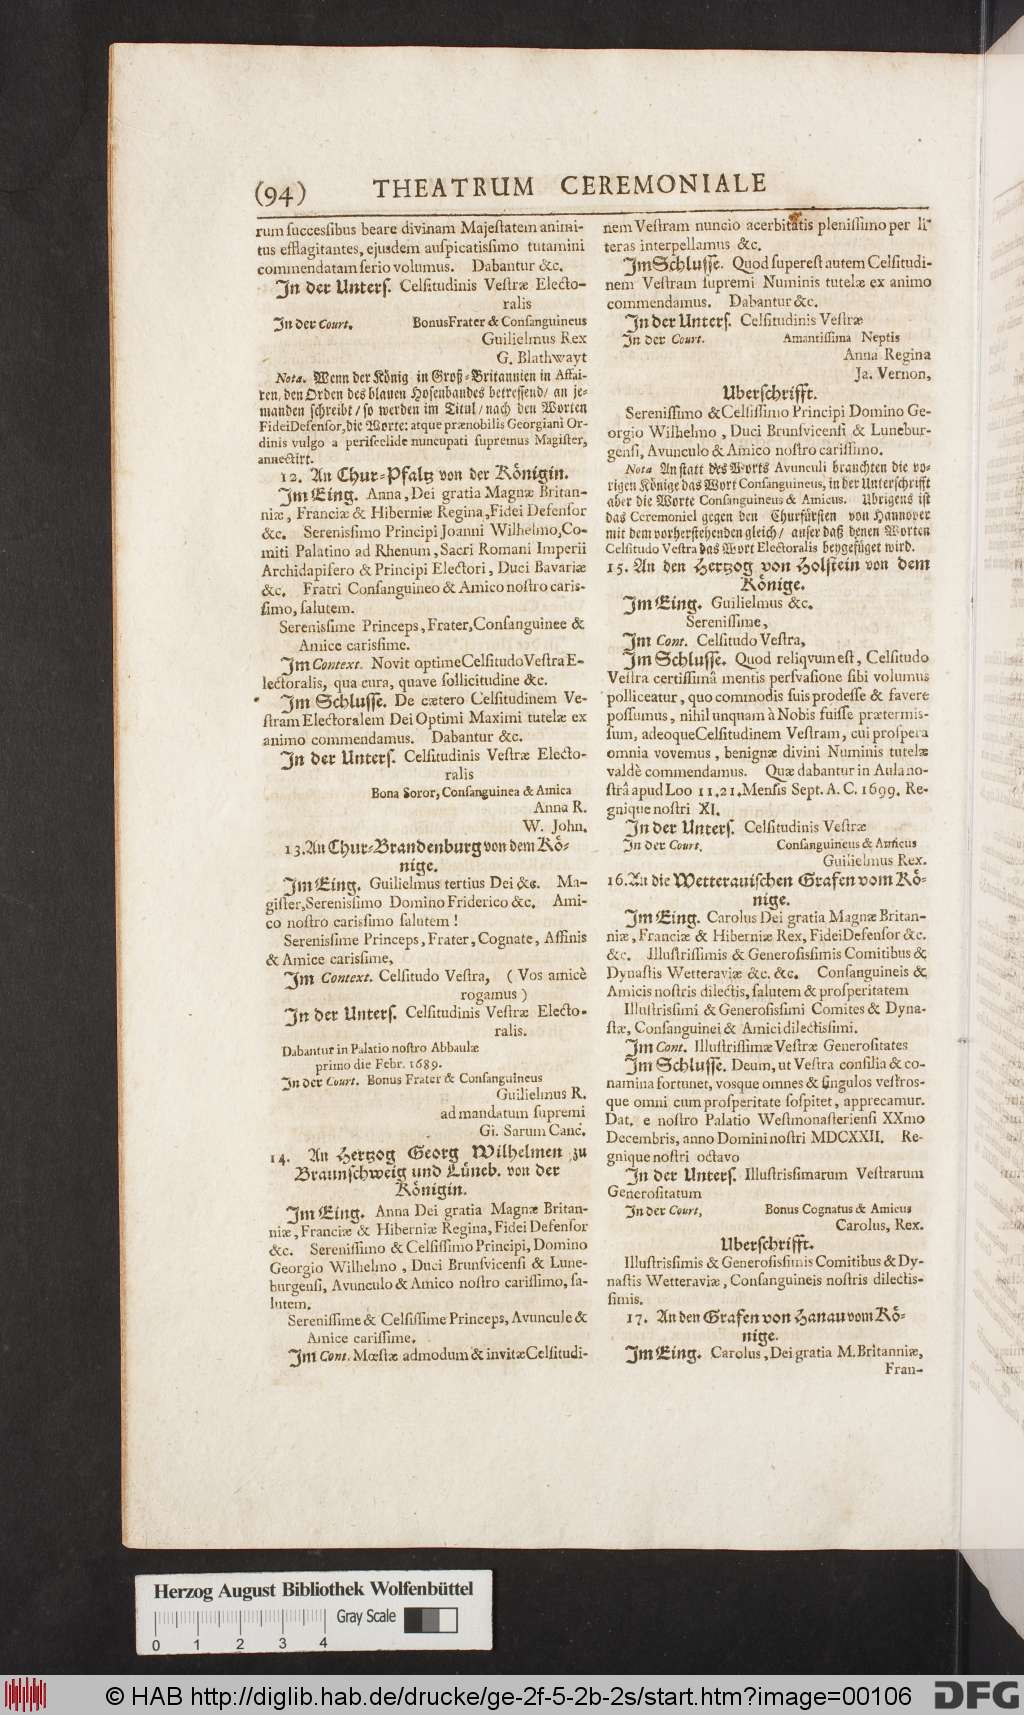 (94) THEATRUM CEREMONIALE
rum successibus beare divinam Majestatem animi-
tus efflagitantes, ejusdem auspicatissimo tutamini
commendatam serio volumus. Dabantur &c.
In der Unters. Celsitudinis Vestræ Electo-
ralis
In der Court. Bonus Frater & Consanguineus
Guilielmus Rex
G. Blathwayt
Nota. Wenn der König in Groß-Britannien in Affai-
ren, den Orden des blauen Hosenbandes betreffend/ an je-
manden schreibt/ so werden im Titul/ nach den Worten
Fidei Defensor, die Worte: atque prænobilis Georgiani Or-
dinis vulgo a periscelide nuncupati supremus Magister,
annectirt.
12. An Chur-Pfaltz von der Königin.
Im Eing. Anna, Dei gratia Magnæ Britan-
niæ, Franciæ & Hiberniæ Regina, Fidei Defensor
&c. Serenissimo Principi Joanni Wilhelmo, Co-
miti Palatino ad Rhenum, Sacri Romani Imperii
Archidapifero & Principi Electori, Duci Bavariæ
&c. Fratri Consanguineo & Amico nostro caris-
simo, salutem.
Serenissime Princeps, Frater, Consanguinee &
Amice carissime.
Im Context. Novit optime Celsitudo Vestra E-
lectoralis, qua cura, quave sollicitudine &c.
Im Schlusse. De cætero Celsitudinem Ve-
stram Electoralem Dei Optimi Maximi tutelæ ex
animo commendamus. Dabantur &c.
In der Unters. Celsitudinis Vestræ Electo-
ralis
Bona Soror, Consanguinea & Amica
Anna R.
W. John.
13. An Chur-Brandenburg von dem Kö-
nige.
Im Eing. Guilielmus tertius Dei &c. Ma-
gister, Serenissimo Domino Friderico &c. Ami-
co nostro carissimo salutem!
Serenissime Princeps, Frater, Cognate, Affinis
& Amice carissime,
Im Context. Celsitudo Vestra, ( Vos amicè
rogamus )
In der Unters. Celsitudinis Vestræ Electo-
ralis.
Dabantur in Palatio nostro Abbaulæ
primo die Febr. 1689.
In der Court. Bonus Frater & Consanguineus
Guilielmus R.
ad mandatum supremi
Gi. Sarum Canc.
14. An Hertzog Georg Wilhelmen zu
Braunschweig und Lüneb. von der
Königin.
Im Eing. Anna Dei gratia Magnæ Britan-
niæ, Franciæ & Hiberniæ Regina, Fidei Defensor
&c. Serenissimo & Celsissimo Principi, Domino
Georgio Wilhelmo, Duci Brunsvicensi & Lune-
burgensi, Avunculo & Amico nostro carissimo, sa-
lutem.
Serenissime & Celsissime Princeps, Avuncule &
Amice carissime.
Im Cont. Mœstæ admodum & invitæ Celsitudi-
nem Vestram nuncio acerbitatis plenissimo per li-
teras interpellamus &c.
Im Schlusse. Quod superest autem Celsitudi-
nem Vestram supremi Numinis tutelæ ex animo
commendamus. Dabantur &c.
In der Unters. Celsitudinis Vestræ
In der Court. Amantissima Neptis
Anna Regina
Ja. Vernon,
Uberschrifft.
Serenissimo & Celsissimo Principi Domino Ge-
orgio Wilhelmo, Duci Brunsvicensi & Lunebur-
gensi, Avunculo & Amico nostro carissimo.
Nota Anstatt des Worts Avunculi brauchten die vo-
rigen Könige das Wort Consanguineus, in der Unterschrifft
aber die Worte Consanguineus & Amicus. Ubrigens ist
das Ceremoniel gegen den Churfürsten von Hannover
mit dem vorherstehenden gleich/ ausser daß denen Worten
Celsitudo Vestra das Wort Electoralis beygefüget wird.
15. An den Hertzog von Holstein von dem
Könige.
Im Eing. Guilielmus &c.
Serenissime,
Im Cont. Celsitudo Vestra,
Im Schlusse. Quod reliqvum est, Celsitudo
Vestra certissimâ mentis persvasione sibi volumus
polliceatur, quo commodis suis prodesse & favere
possumus, nihil unquam à Nobis fuisse prætermis-
sum, adeoque Celsitudinem Vestram, cui prospera
omnia vovemus, benignæ divini Numinis tutelæ
valdè commendamus. Quæ dabantur in Aula no-
strâ apud Loo 11.21. Mensis Sept. A. C. 1699. Re-
gnique nostri XI.
In der Unters. Celsitudinis Vestræ
In der Court. Consanguineus & Amicus
Guilielmus Rex.
16. An die Wetterauischen Grafen vom Kö-
nige.
Im Eing. Carolus Dei gratia Magnæ Britan-
niæ, Franciæ & Hiberniæ Rex, Fidei Defensor &c.
&c. Illustrissimis & Generosissimis Comitibus &
Dynastis Wetteraviæ &c. &c. Consanguineis &
Amicis nostris dilectis, salutem & prosperitatem
Illustrissimi & Generosissimi Comites & Dyna-
stæ, Consanguinei & Amici dilectissimi.
Im Cont. Illustrissimæ Vestræ Generositates
Im Schlusse. Deum, ut Vestra consilia & co-
namina fortunet, vosque omnes & singulos vestros-
que omni cum prosperitate sospitet, apprecamur.
Dat. e nostro Palatio Westmonasteriensi XXmo
Decembris, anno Domini nostri MDCXXII. Re-
gnique nostri octavo
In der Unters. Illustrissimarum Vestrarum
Generositatum
In der Court, Bonus Cognatus & Amicus
Carolus, Rex.
Uberschrifft.
Illustrissimis & Generosissimis Comitibus & Dy-
nastis Wetteraviæ, Consanguineis nostris dilectis-
simis.
17. An den Grafen von Hanau vom Kö-
nige.
Im Eing. Carolus, Dei gratia M. Britanniæ,
Fran-
Herzog August Bibliothek Wolfenbüttel
Gray Scale
0 1 2 3 4
© HAB http://diglib.hab.de/drucke/ge-2f-5-2b-2s/start.htm?image=00106
DFG